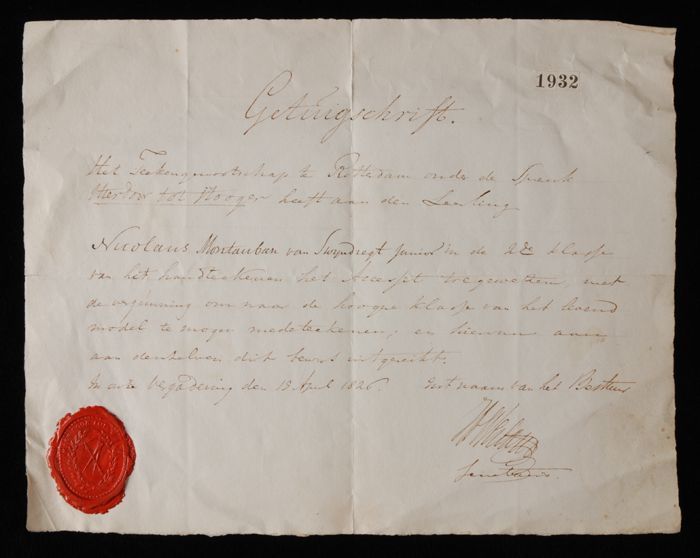 1932
Getuigschrift.
Het Teekengenootschap te Rotterdam onder de Spreuk
Hierdoor tot Hooger heeft aan den Leerling
Nicolaus Montauban van Swyndregt Junior in de 2de klasse
van het handteekenen het Accessit toegewezen, met
de vergunning om naar de hoogere klasse van het levend
model te mogen medeteekenen; en hiervan aan
aan denzelven dit bewijs uitgereikt.
In onze Vergadering den 18 April 1826. Uit naam van het Bestuur
Secretaris.